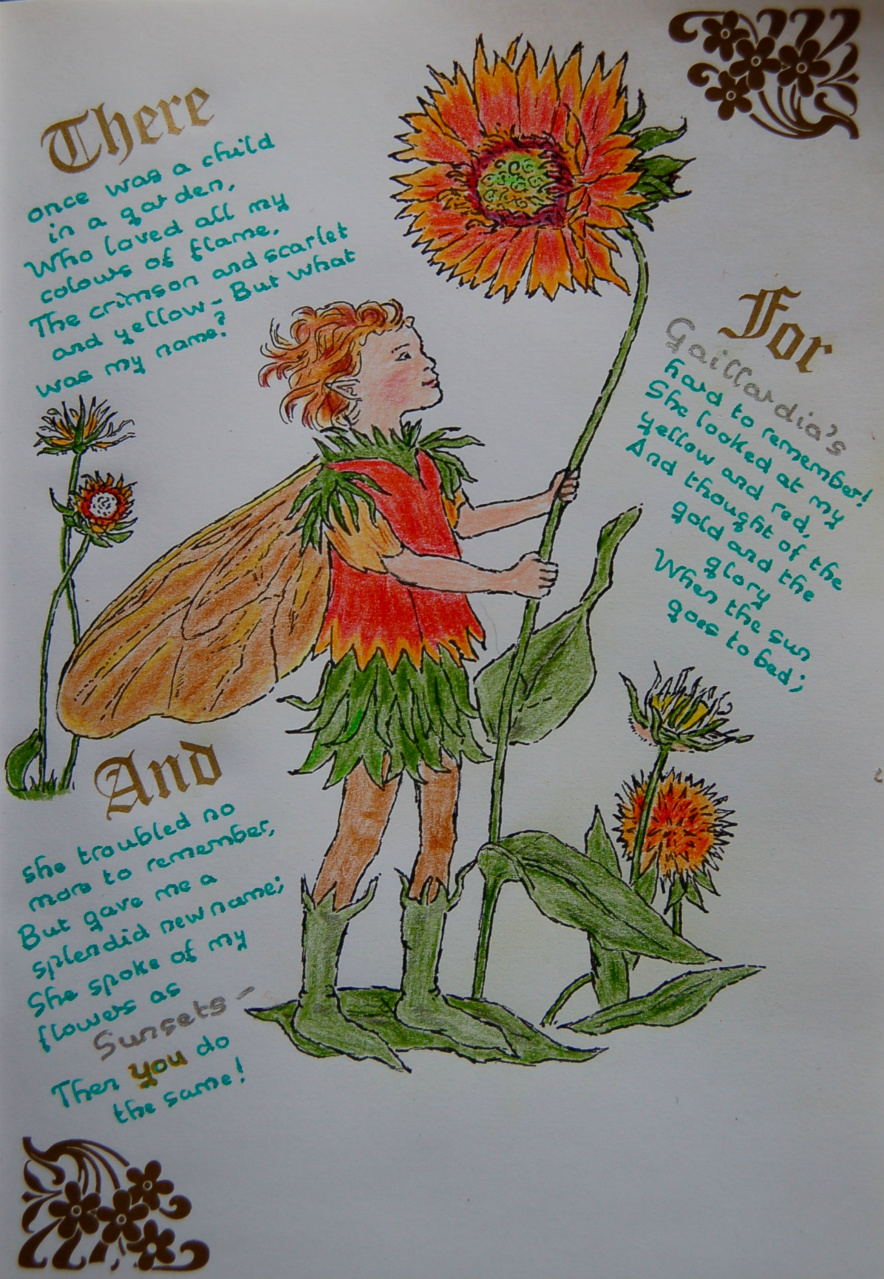 There
once was a child
in a garden,
Who loved all my
colours of flame,
The crimson and scarlet
and yellow - But what
was my name?
For
Gaillardia's
hard to remember!
She looked at my
yellow and red,
And thought of the
gold and the
glory
When the sun
goes to bed;
And
she troubled no
more to remember,
But gave me a
splendid new name;
She spoke of my
flowers as
Sunsets -
Then you do
the same!